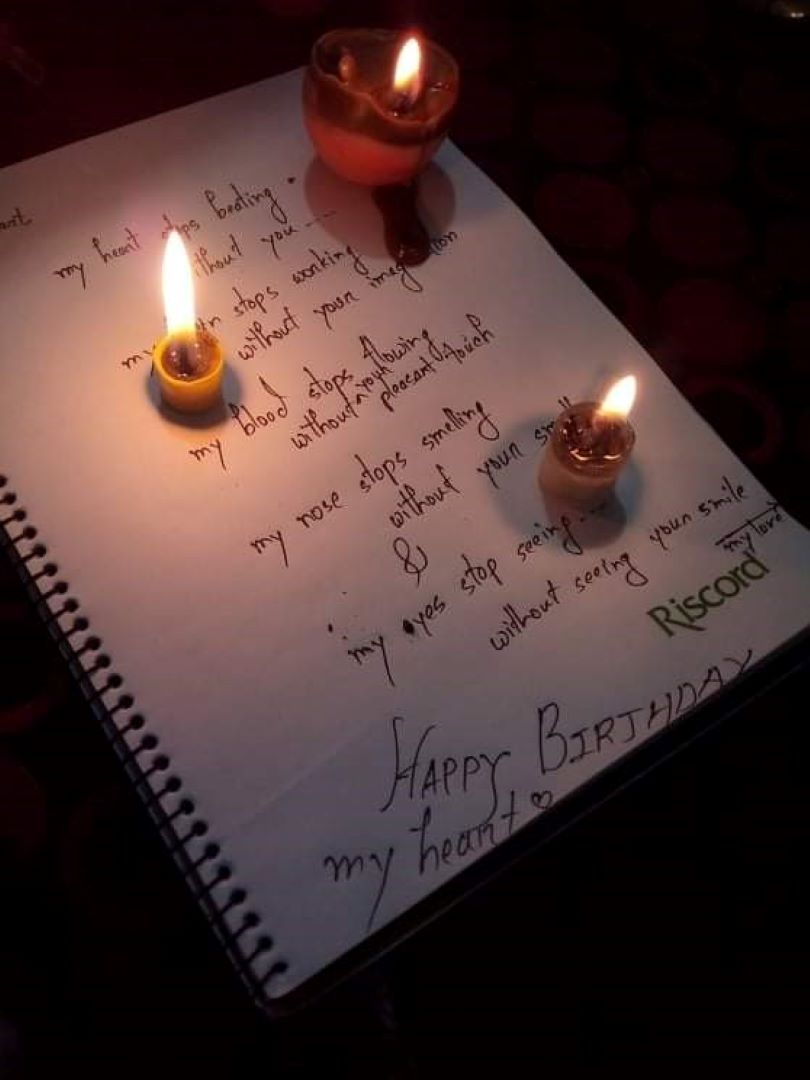 my heart stops beating
without you ----
my stops working
without your
my blood stops flowing
without your pleasant touch
my nose stops smelling
without your
&
my eyes stop seeing ---
without seeing your smile
my lord
Riscord
HAPPY BIRTHDAY
my heart ♡